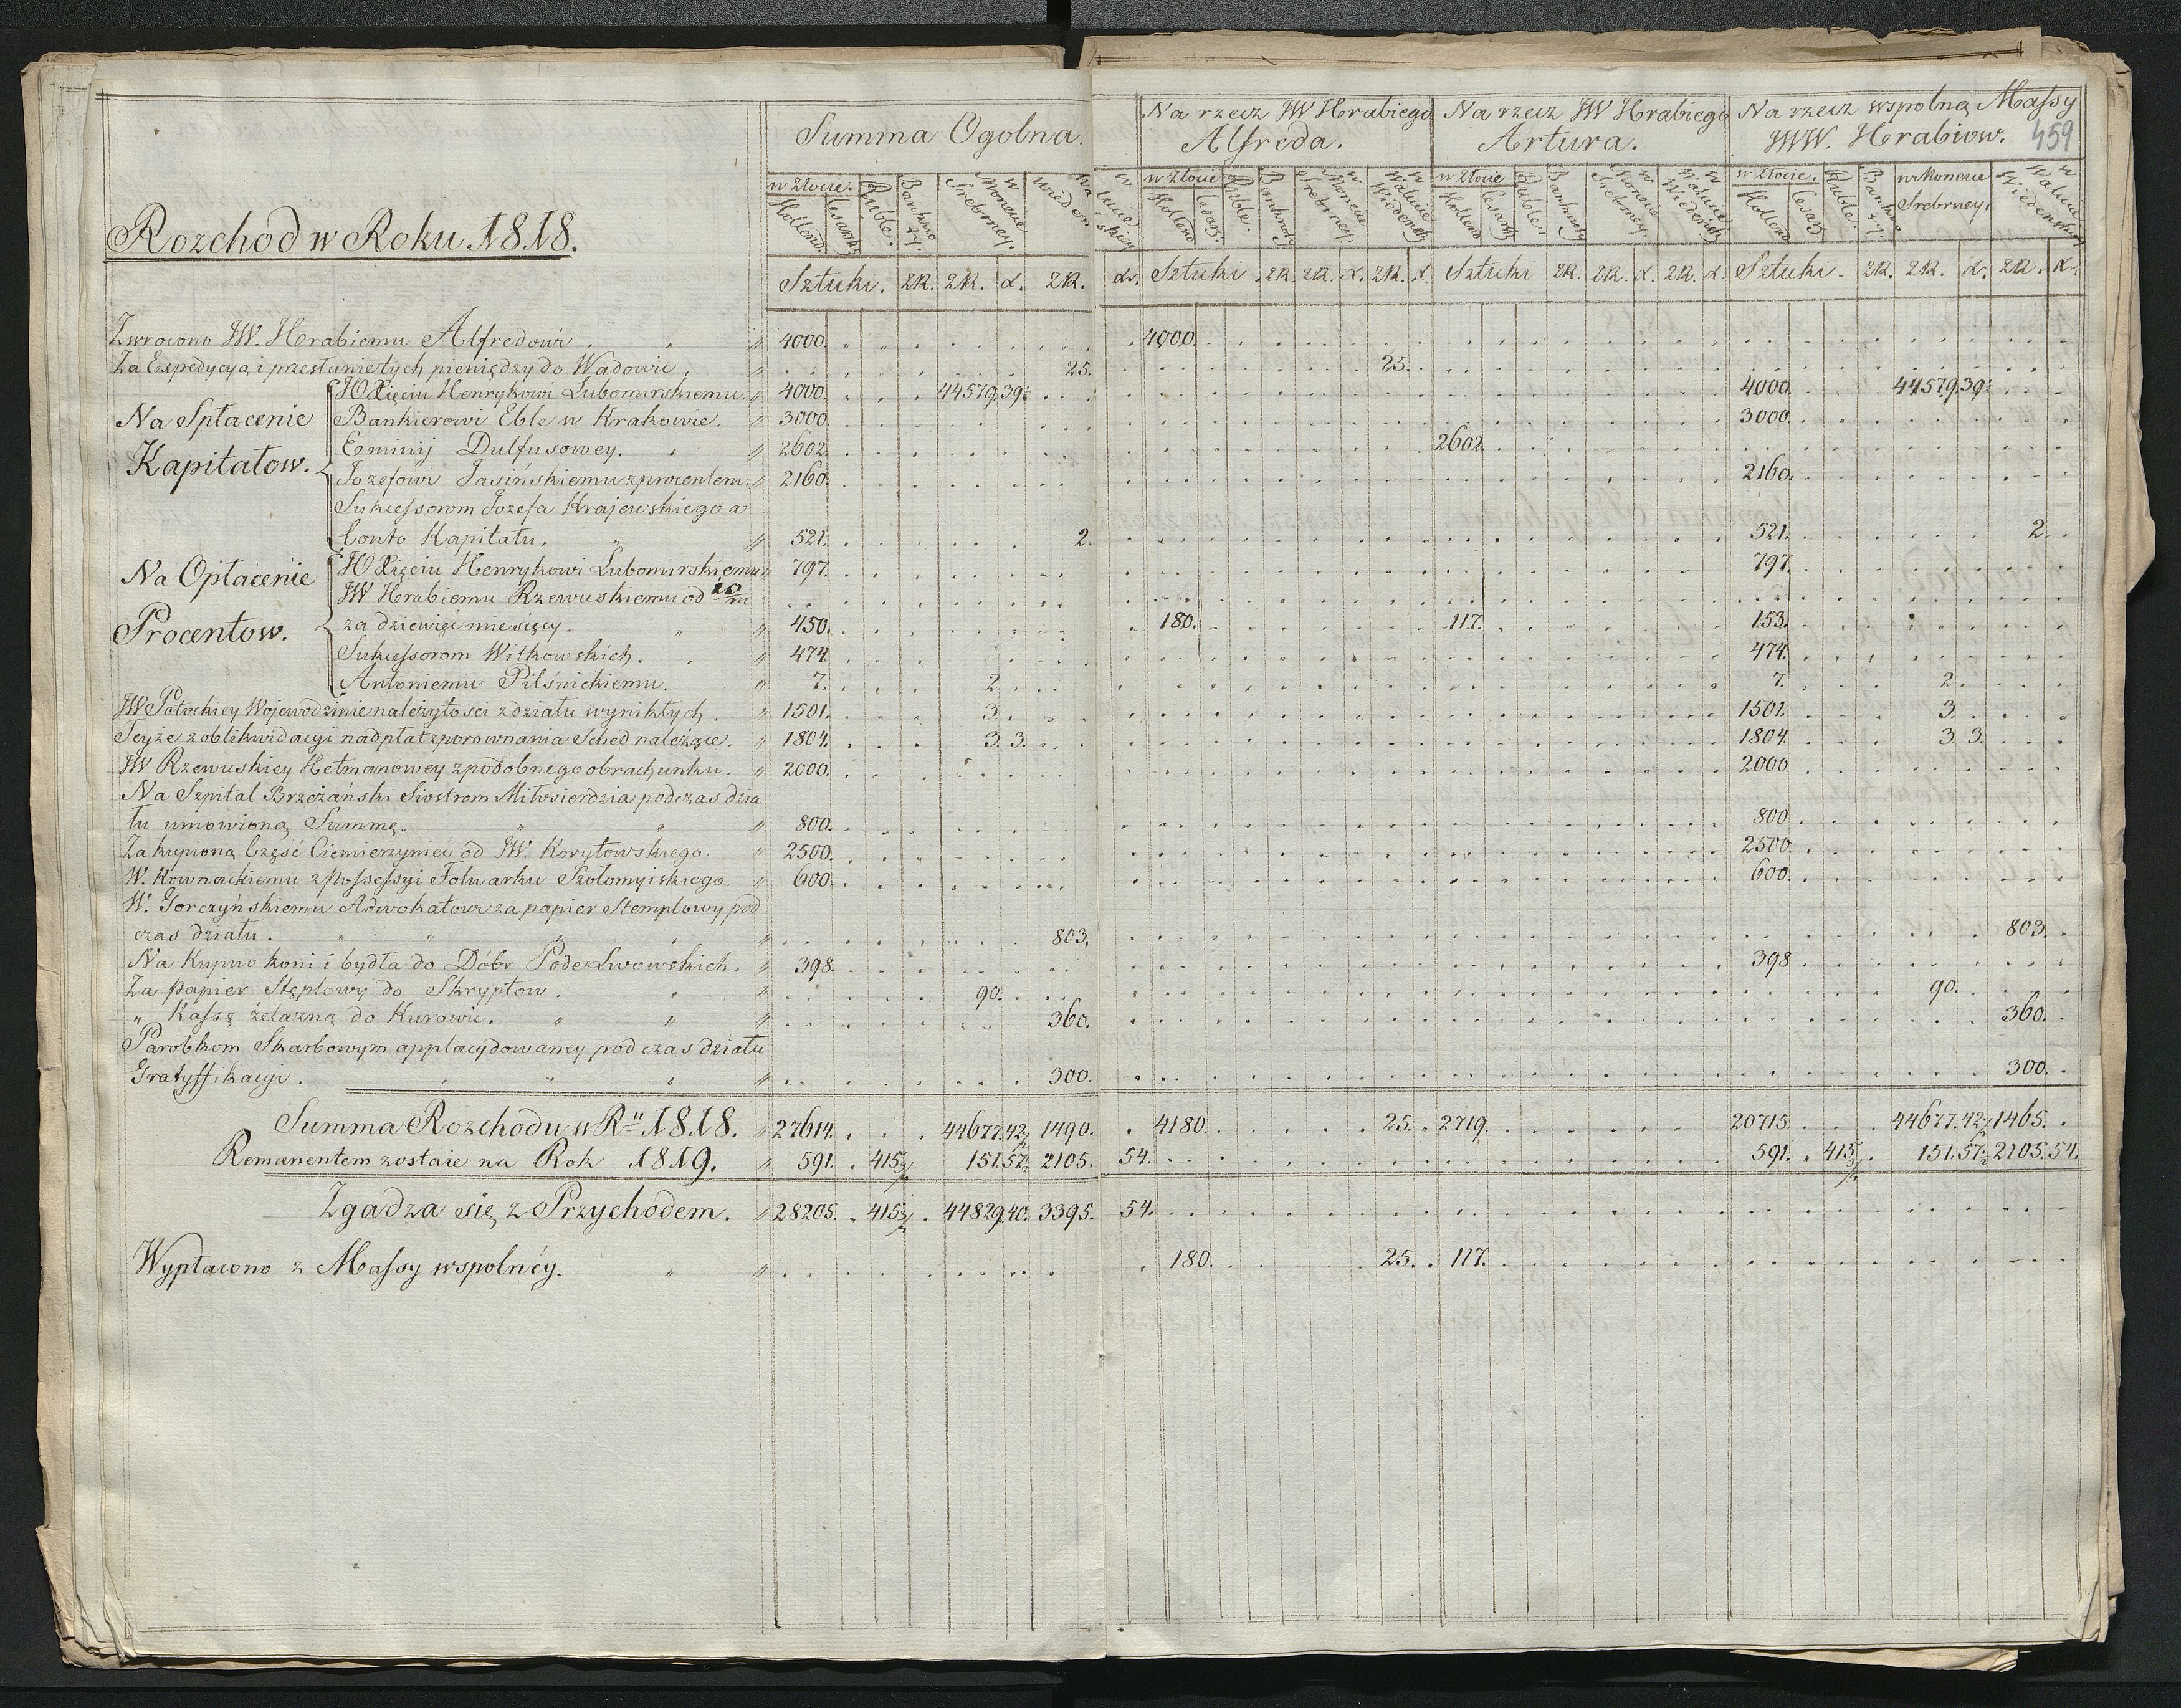 Rozchod w Roku 1818.
Summa Ogolna.
Na rzecz JW Hrabiego Alfreda.
Na rzecz JW Hrabiego Artura.
Na rzecz wspolną Massy JWW. Hrabiow.
459
w złocie. Hollend. Cesarsk. Ruble. Banknoty. w Monecie Srebrney. w Walucie Wiedenskiey
w złocie Hollend Cesarz. Ruble. Banknoty w Monecie Srebrney. w Walucie Wiedensk
w złocie Hollend Cesarsk Ruble. Banknoty w Monecie Srebrney. w Walucie Wiedeńsk
w złocie. Hollend Cesarz Ruble. Banknoty. w Monecie Srebrney. w Walucie Wiedenskiey
Sztuki. ZR. ZR. x. ZR. xr. Sztuki. ZR. ZR. x. ZR. x. Sztuki ZR. ZR. x. ZR. x. Sztuki. ZR. ZR. x. ZR. x.
Zwrocono JW. Hrabiemu Alfredowi . " " 4000. 4000.
Za Expedycyą i przesłanie tych pieniędzy do Wadowic. " 25. 25.
Na Spłacenie Kapitałow.
JO Xięciu Henrykowi Lubomirskiemu. " 4000. 44579. 39. 4000. 44579. 39.
Bankierowi Eble w Krakowie. " 3000. 3000.
Eminij Dulfusowey. " " 2602. 2602.
Jozefowi Jasińskiemu z procentem. " 2160. 2160.
Sukcessorom Jozefa Krajewskiego a
Conto Kapitału. " " 521. 2. 521. 2.
Na Opłacenie Procentow.
JO Xięciu Henrykowi Lubomirskiemu " 797. 797.
JW Hrabiemu Rzewuskiemu od 10/m
za dziewięć miesięcy. " " 450. 180. 117. 153.
Sukcessorom Witkowskich. " " 474. 474.
Antoniemu Pilśnickiemu. " 7. 2. 7. 2.
JW Potockiey Wojewodzinie należytości z działu wynikłych. " 1501. 3. 1501. 3.
Teyże z oblikwidacyi nadpłat z porownania Sched należące. " 1804. 3. 3. 1804. 3. 3.
JW Rzewuskiey Hetmanowey z podobnego obrachunku. " 2000. 2000.
Na Szpital Brzeżański Siostrom Miłosierdzia podczas dzia
łu umowioną Summę. " " " 800. 800.
Za kupioną Część Ciemierzyniec od JW. Korytowskiego. " 2500. 2500.
W. Kownackiemu z Possessyi Folwarku Szołomyiskiego. " 600. 600.
W. Gorczyńskiemu Adwokatowi za papier Stemplowy pod
czas działu. " " " " " 803. 803.
Na Kupno koni i bydła do Dóbr PodeLwowskich. " 398. 398.
Za Papier Stęplowy do Skryptow. " " 90. 90.
" Kassę żelazną do Kurowic. " " " 360. 360.
Parobkom Skarbowym applacydowaney pod czas działu
Gratyffikacyi. " " " " 300. 300.
Summa Rozchodu w Rⁿ 1818. " 27614. 44677. 42½ 1490. 4180. 25. 2719. 20715. 44677. 42½ 1465.
Remanentem zostaie na Rok 1819. " 591. 415½ 151. 57½ 2105. 54. 591. 415½ 151. 57½ 2105. 54.
Zgadza się z Przychodem. " 28205. 415½ 44829. 40. 3395. 54.
Wypłacono z Massy wspolnéy. " " 180. 25. 117.